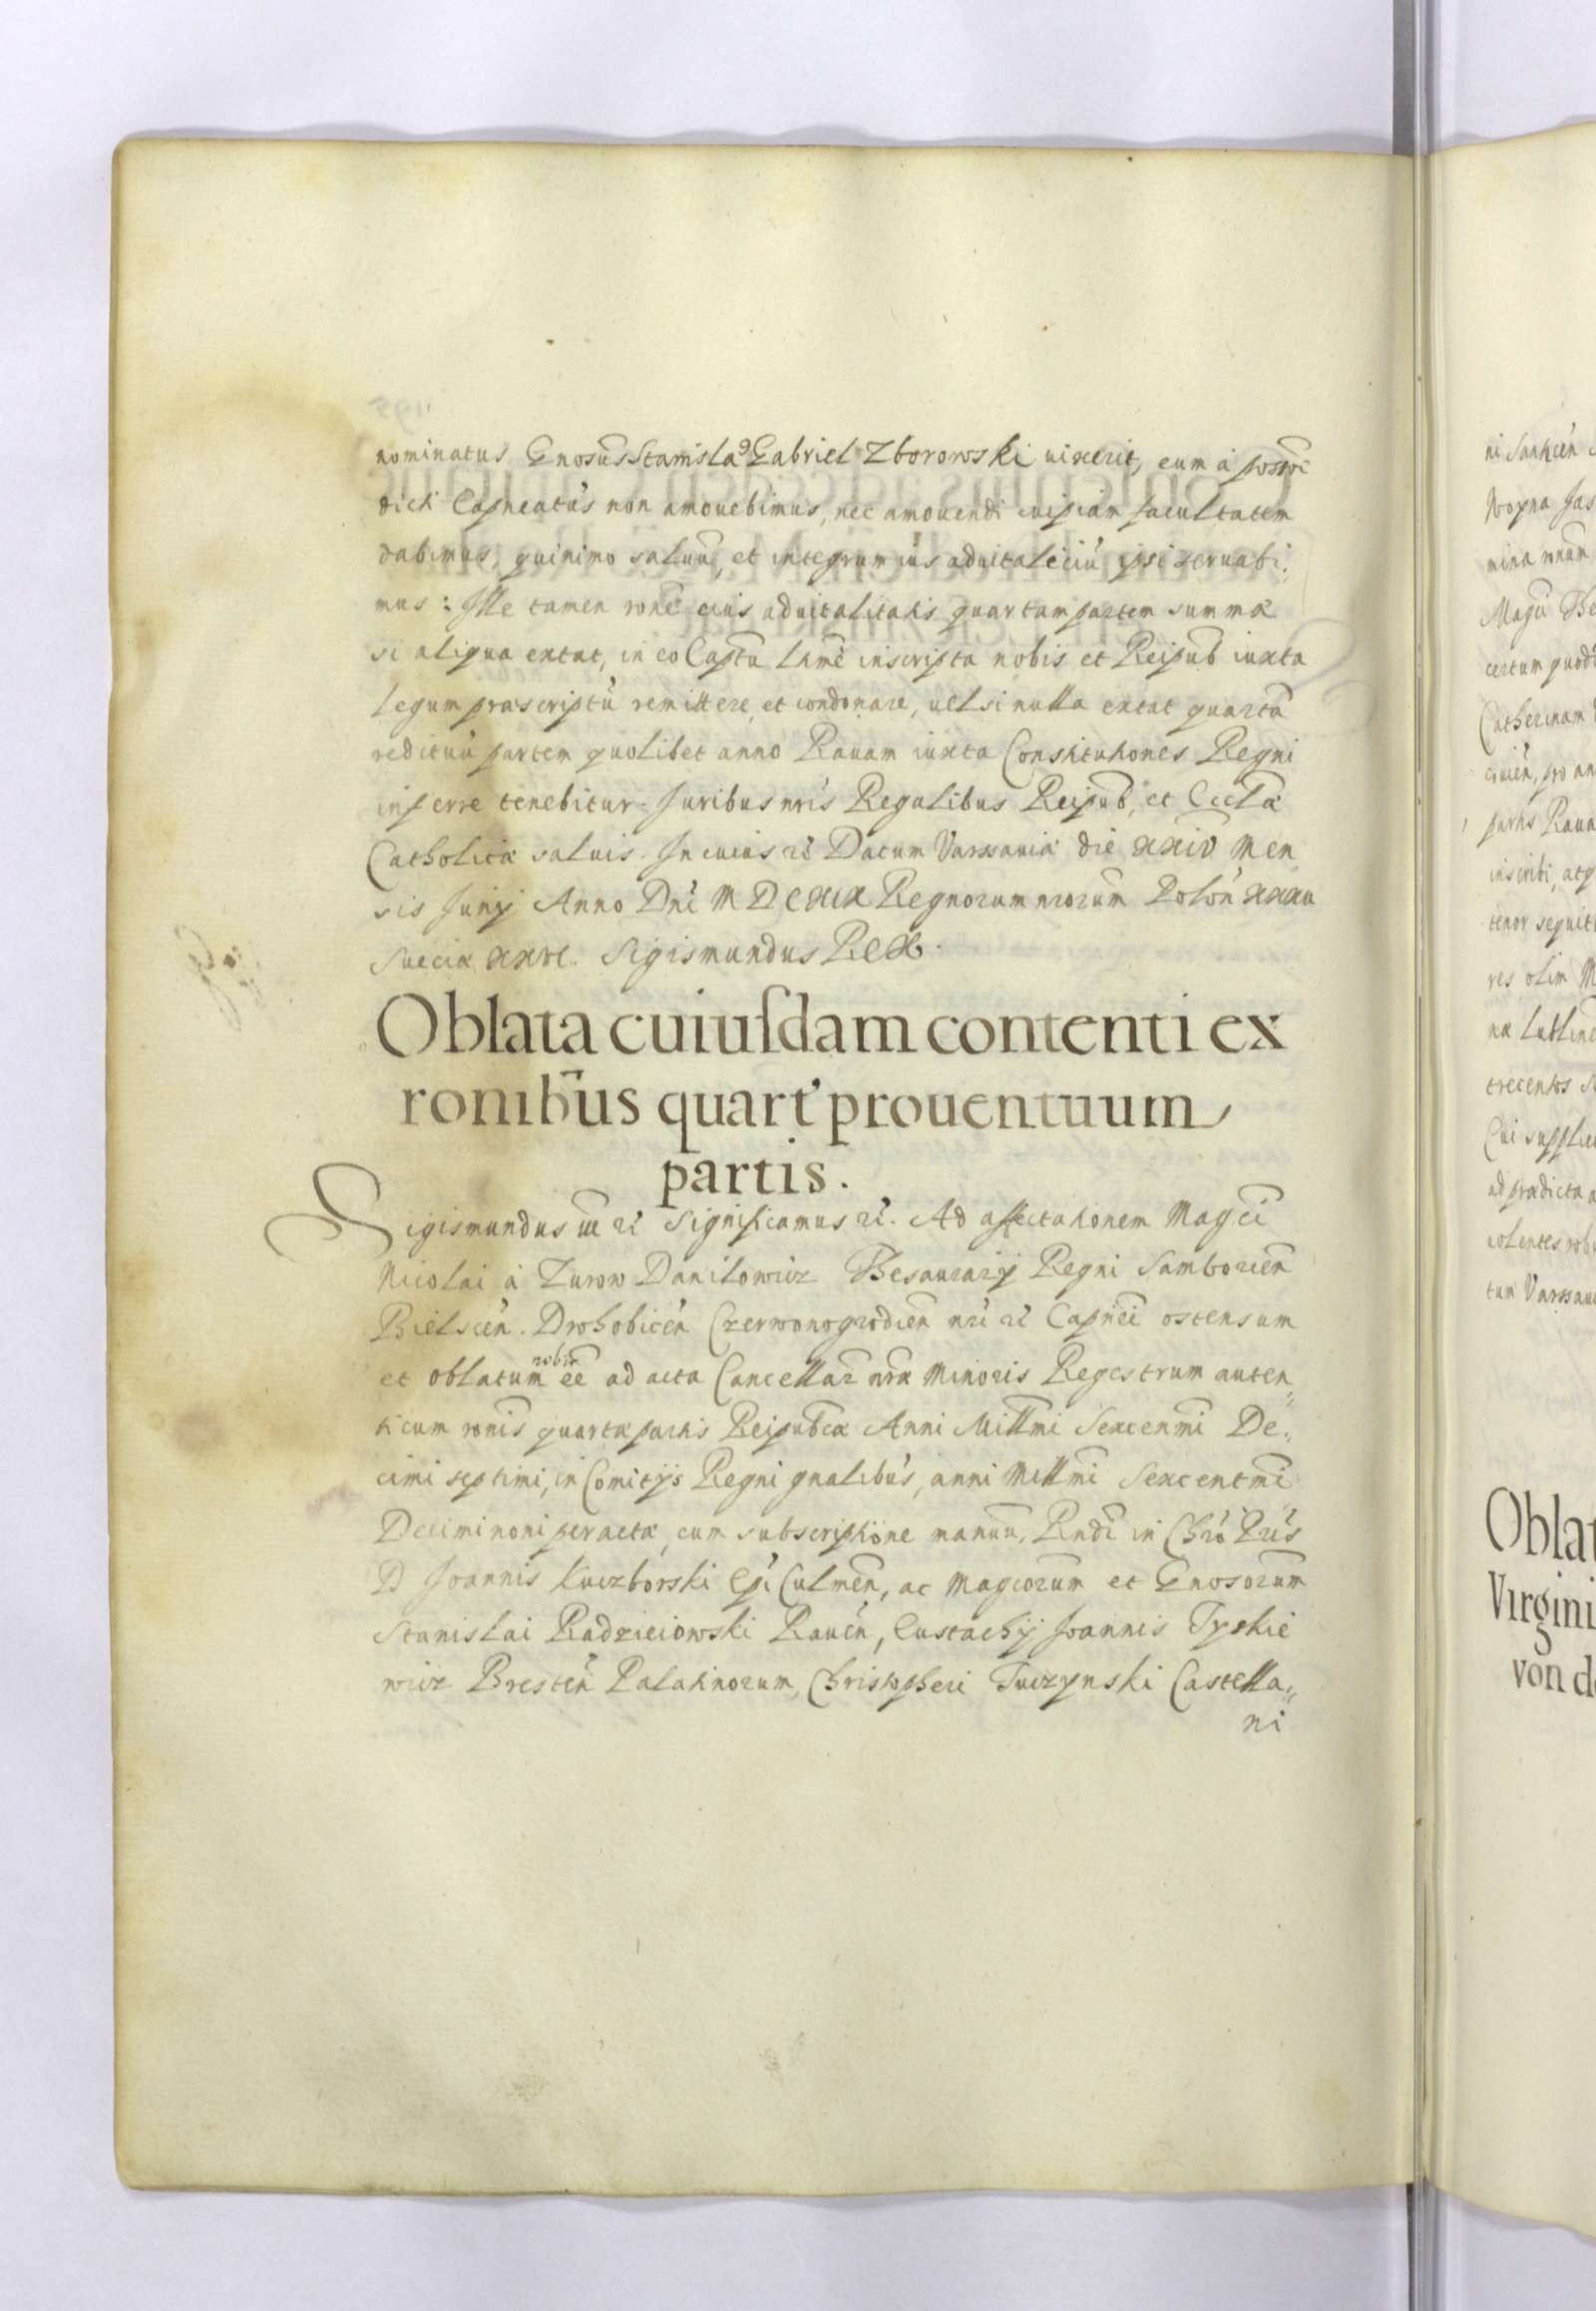 nominatus Gnosūs Stanisla9 Gabriel Zborowski uixerit, eum à possõe
dicti Capneatûs non amouebimus, nec amouendi cuipiam facultatem
dabimus, quinimo saluū, et integrum ius aduitaliciū ipsi seruabi:
mus: Ille tamen rone eius aduitalitatis quartam partem summæ
si aliqua extat, in eo Captu lñme inscripta nobis et Reipub iuxta
legum præscriptū remittere, et condonare, uel si nulla extat quartā
redituū partem quolibet anno Rauam iuxta Constitutiones Regni
inferre tenebitur. Juribus nris Regalibus Reipub, et Eccla
Catholicæ saluis. In cuius rei Datum Varsauiæ die XXIV Men
sis Junij Anno Dni MDCXIX Regnorum nrorum Polon XXXII
Sueciæ XXVI. Sigismundus Rex.
Oblata cuiusdam contenti ex
ronibus quart prouentuum
partis.
Sigismundus III rc Significamus rc. Ad affectationem Magci
Nicolai à Zurow Danilowicz Thesaurarij Regni Samborien
Bielscen. Drohobicen Czerwonogrodien nri rc Capnei ostensum
et oblatum nobis ee ad acta Cancellar nræ Minoris Regestrum auten
ticum ronis quartæ partis Reipubcæ Anni Millmi Sexcenmi De:
cimi septimi, in Comitijs Regni gnalibus, anni Millmi Sexcentmi
Decimi noni peractæ, cum subscriptione manuū, Rndi in Chro Pris
D Joannis Kuczborski Epi Culmen, ac Magcorum et Gnosorum
Stanislai Radzieiowski Rauen, Eustachij Joannis Tyskie
wicz Bresten Palatinorum, Christopheri Tuczynski Castella:
ni